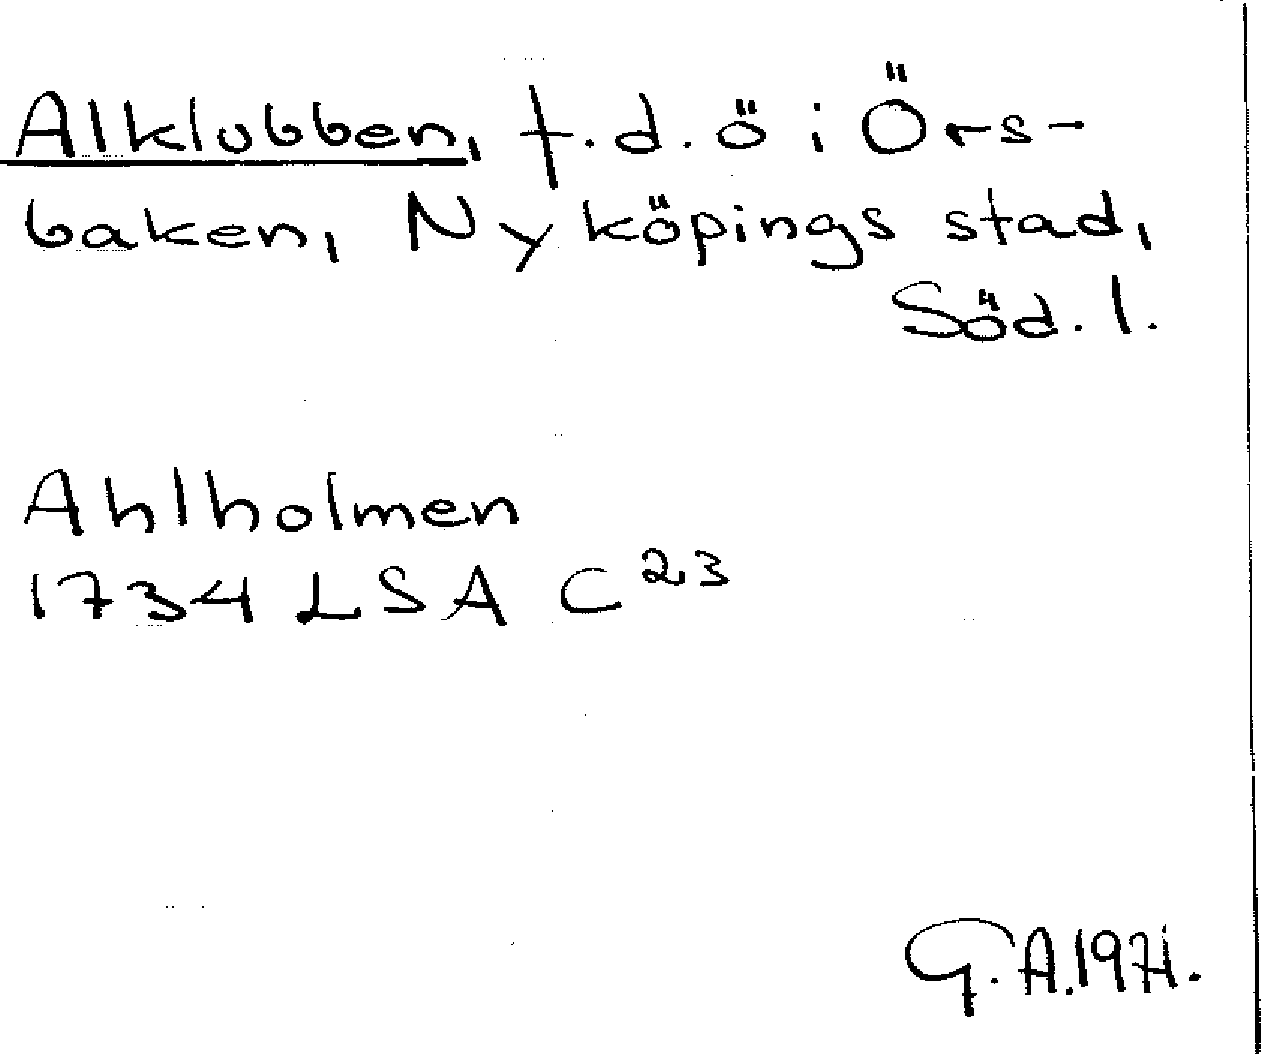 Alklubben, f.d. ö i Örs-
baken, Nyköpings stad,
Söd. l.
Ahlholmen
1734 LSA C 23
G. A. 1971.